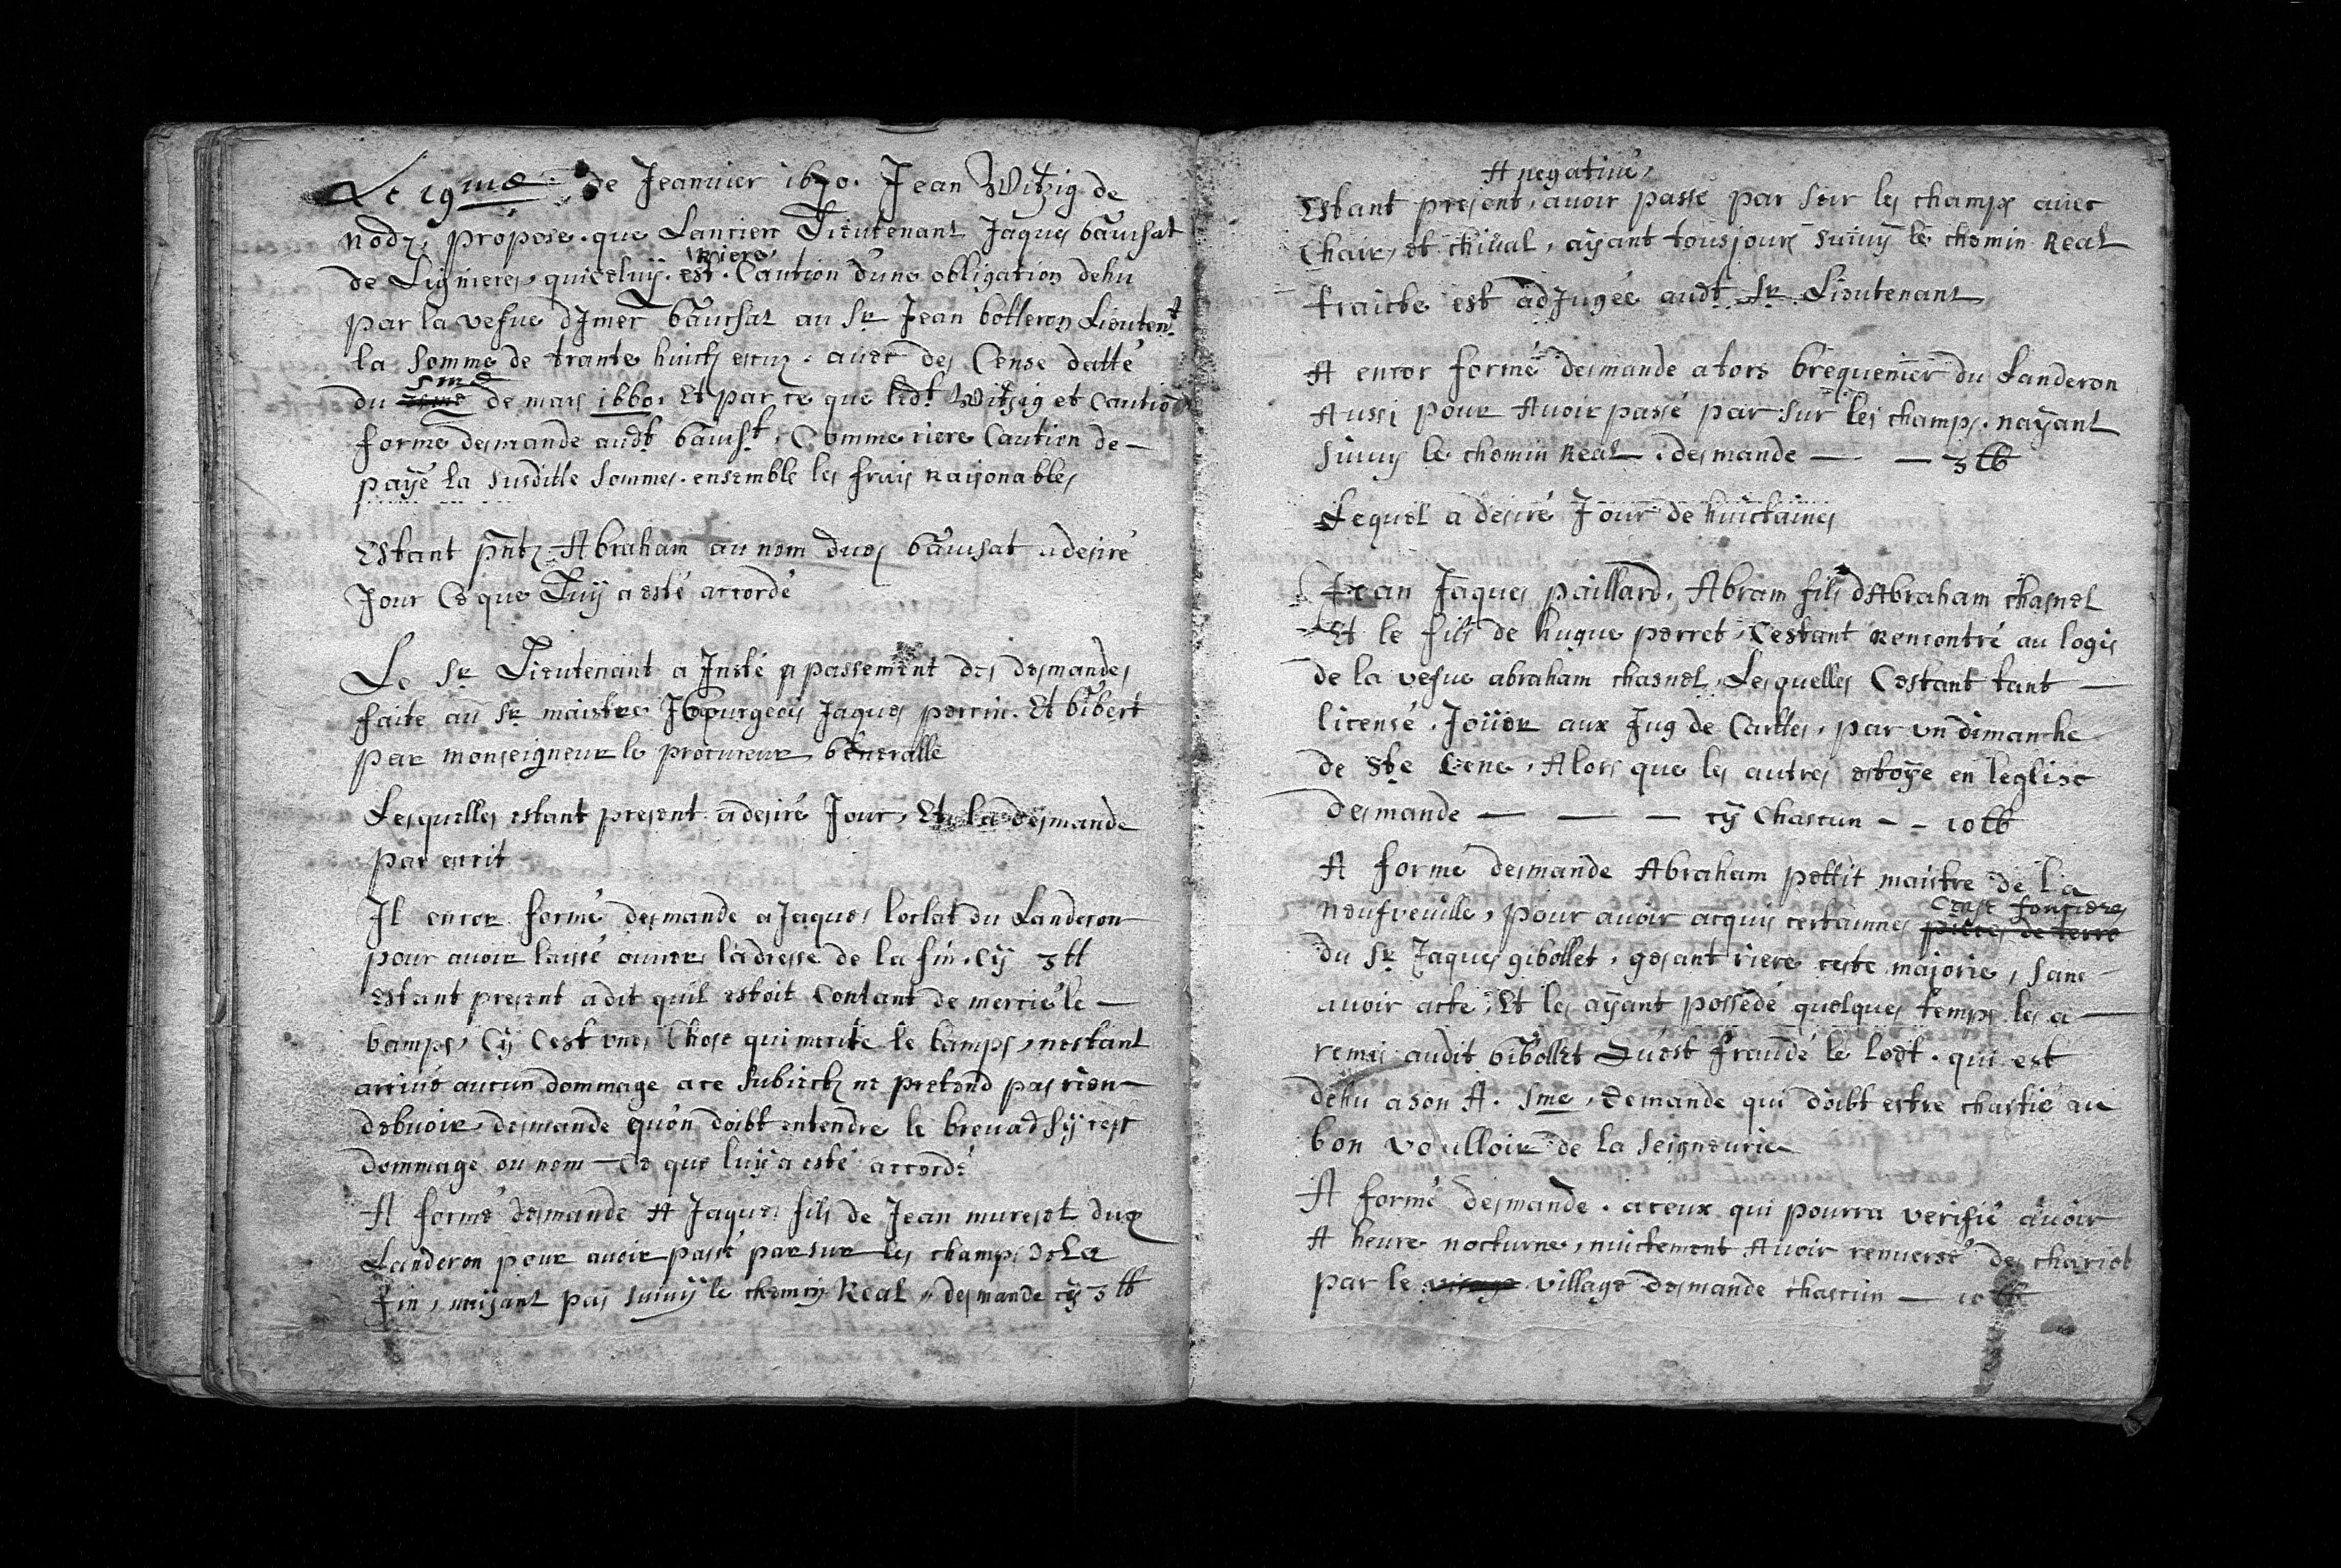 Le 19me de Jeanvier 1670. Jean Witzig de
nodz, propose que Lancien Lieutenant Jaques bauisat
de Lignieres, qui eluy est riere Caution d'une obligation dehu
par la vefue dImer bauisat au Sr Jean botteron Lieutent
la Somme de trante huict escuz. avec des Cense datté
du 5me de mars 1660. Et par ce que ledt Witzig et Caution
forme desmande audt bauist. Comme riere Caution de
payé la susditte sommes. ensemble les frais Raisonables
Estant pntz Abraham au nom du bauisat a desiré
Jour Ce que Luÿ a esté accordé
Le Sr Lieutenant a Insté passement des desmandes
faite au Sr maistre bourgeois Jaques perrin. Et Gibert
par monseigneur le procureur Generalle
Lesquelles estant present a desiré Jour, Et la desmande
par escrit
Il encor formé desmande a Jaques loclat du Landeron
pour avoir laissé ouvert ladresse de la fin. Cÿ 3 tt
Estant present a dit quil estoit Contant de mercié le
bamps, Cÿ Cest une Chose qui merite le bamps, nestant
arrivé aucun dommage a ce Subiectz ne pretend pas rien
debvoir desmande quon doibt entendre le brevad sÿ cest
dommage ou nom Ce que luÿ a esté accordé
A formé desmande A Jaques fils de Jean muresot du
Landeron pour avoir passé par sur les champs de La
fin, nayant pas suivÿ le chemin Real desmande cÿ 3 tt
A negativé,
Estant present, avoir passé par sur les champs avec
Chair, et chival, aÿant tousjours suivÿ le chemin Real
traicte est adJugée audt Sr Lieutenant
A encor formé desmande a tors brequenier du Landeron
Aussi pour Avoir passé par sur les champs. naÿant
suivy le chemin Real desmande — — 3 tt
Lequel a desiré Jour de huictaines
Jean Jaques paillard. Abram fils dAbraham chasnel
Et le fils de huque perret, Cestant Rencontré au logis
de la vefue abraham chasnel, Lesquelles Cestant tant
licensé. Joüer aux Jug de Cartes, par un dimanche
de Ste Cene, Alors que les autres estoÿe en leglise
desmande — — — cÿ Chascun — — 10 tt
A formé desmande Abraham pettit maistre de la
neufveville, pour avoir acquis certainnes Cense foncieres pieces de terre
du Sr Jaques gibollet, gesant riere ceste majorie, sans
avoir acte, Et les aÿant possedé quelques temps les a
remis audit Gibollet Quest fraudé le lodt. qui est
dehu a son A. Sme. Demande qui doibt estre chastié au
bon voulloir de la Seigneurie
A formé desmande. a ceux qui pourra verifié avoir
A heure nocturne, nuictement Avoir renversé des chariot
par le village desmande chascun — 10 tt